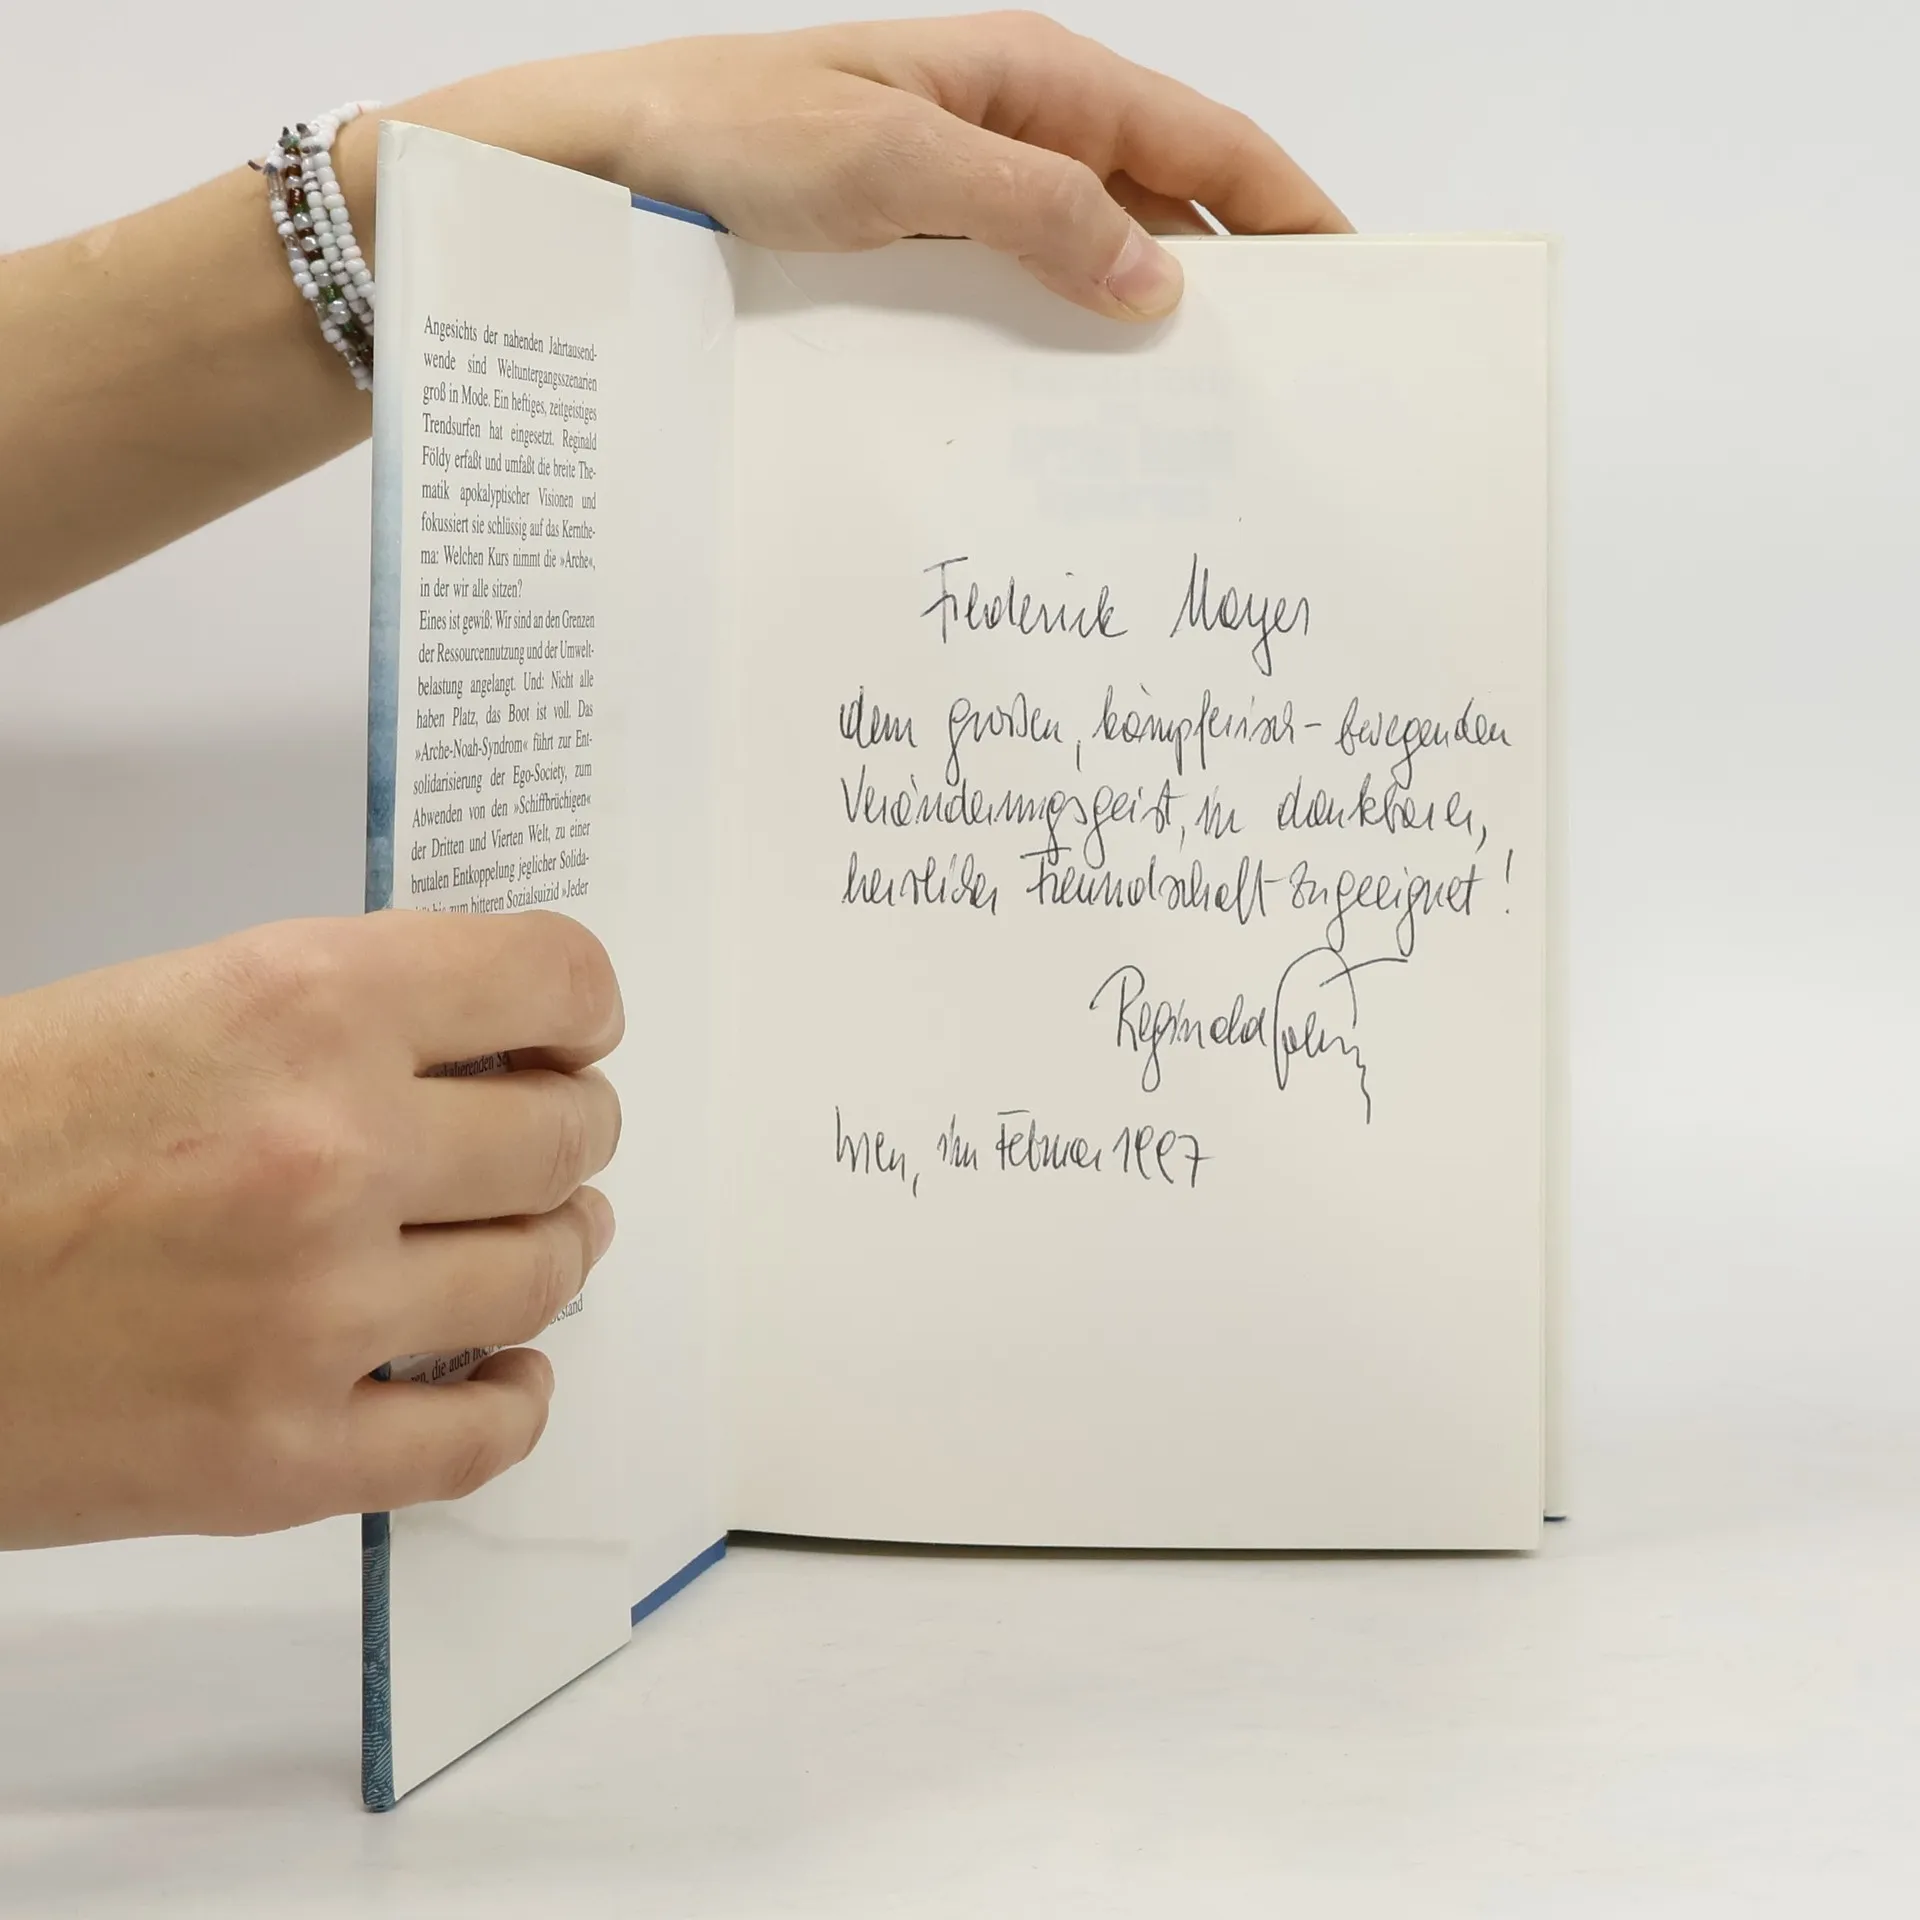 Angesichts der nahenden Jahrtausend-
wende sind Weltuntergangsszenarien
groß in Mode. Ein heftiges, zeitgeistiges
Trendsurfen hat eingesetzt. Reginald
Földy erfaßt und umfaßt die breite The-
matik apokalyptischer Visionen und
fokussiert sie schlüssig auf das Kernthe-
ma: Welchen Kurs nimmt die »Arche«,
in der wir alle sitzen?
Eines ist gewiß: Wir sind an den Grenzen
der Ressourcennutzung und der Umwelt-
belastung angelangt. Und: Nicht alle
haben Platz, das Boot ist voll. Das
»Arche-Noah-Syndrom« führt zur Ent-
solidarisierung der Ego-Society, zum
Abwenden von den »Schiffbrüchigen«
der Dritten und Vierten Welt, zu einer
brutalen Entkoppelung jeglicher Solida-
bis zum bitteren Sozialsuizid »Jeder
die auch noch
Frederick Mayer
dem großen, kämpferisch-bewegenden
Veränderungsgeist, in dankbarer,
herzlicher Freundschaft zugeeignet!
Reginald Földy
Wien, im Februar 1997